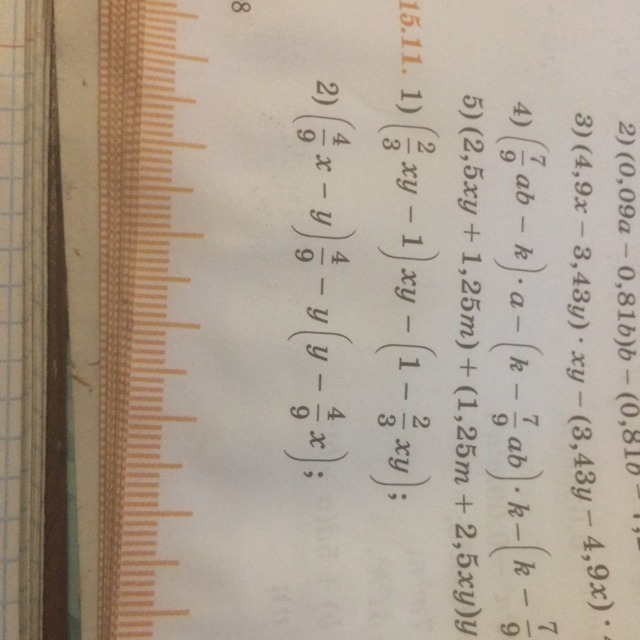 2) (0,09a − 0,81b)b − (0,81b −
3) (4,9x − 3,43y) · xy − (3,43y − 4,9x) ·
4) (7/9 ab − k) · a − (k − 7/9 ab) · k − (k − 7/9
5) (2,5xy + 1,25m) + (1,25m + 2,5xy)y
15.11. 1) (2/3 xy − 1)xy − (1 − 2/3 xy);
2) (4/9 x − y) 4/9 − y(y − 4/9 x);
8